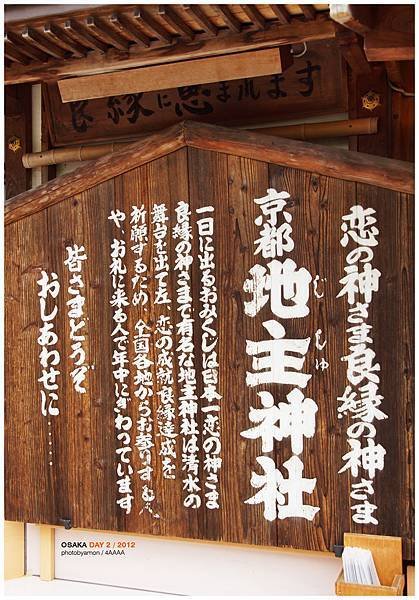 良縁に恵まれます
恋の神さま良縁の神さま
京都地主神社
じしゅ
一日に出るおみくじは日本一恋の神さま
良縁の神さまで有名な地主神社は清水の
舞台を出て左 恋の成就良縁達成を
祈願するため、全国各地からお参りする人
や、お札に来る人で年中にぎわっています
皆さまどうぞ
おしあわせに……
OSAKA DAY 2 / 2012
photobyamon / 4AAAA